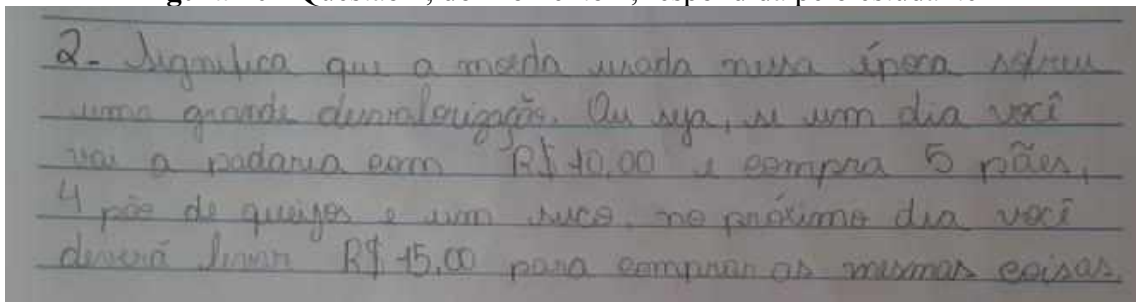 2- Significa que a moeda usada nessa época sofreu
uma grande desvalorização. Ou seja, se um dia você
vai a padaria com R$ 10,00 e compra 5 pães,
4 pão de queijos e um suco, no próximo dia você
deverá levar R$ 15,00 para comprar as mesmas coisas.